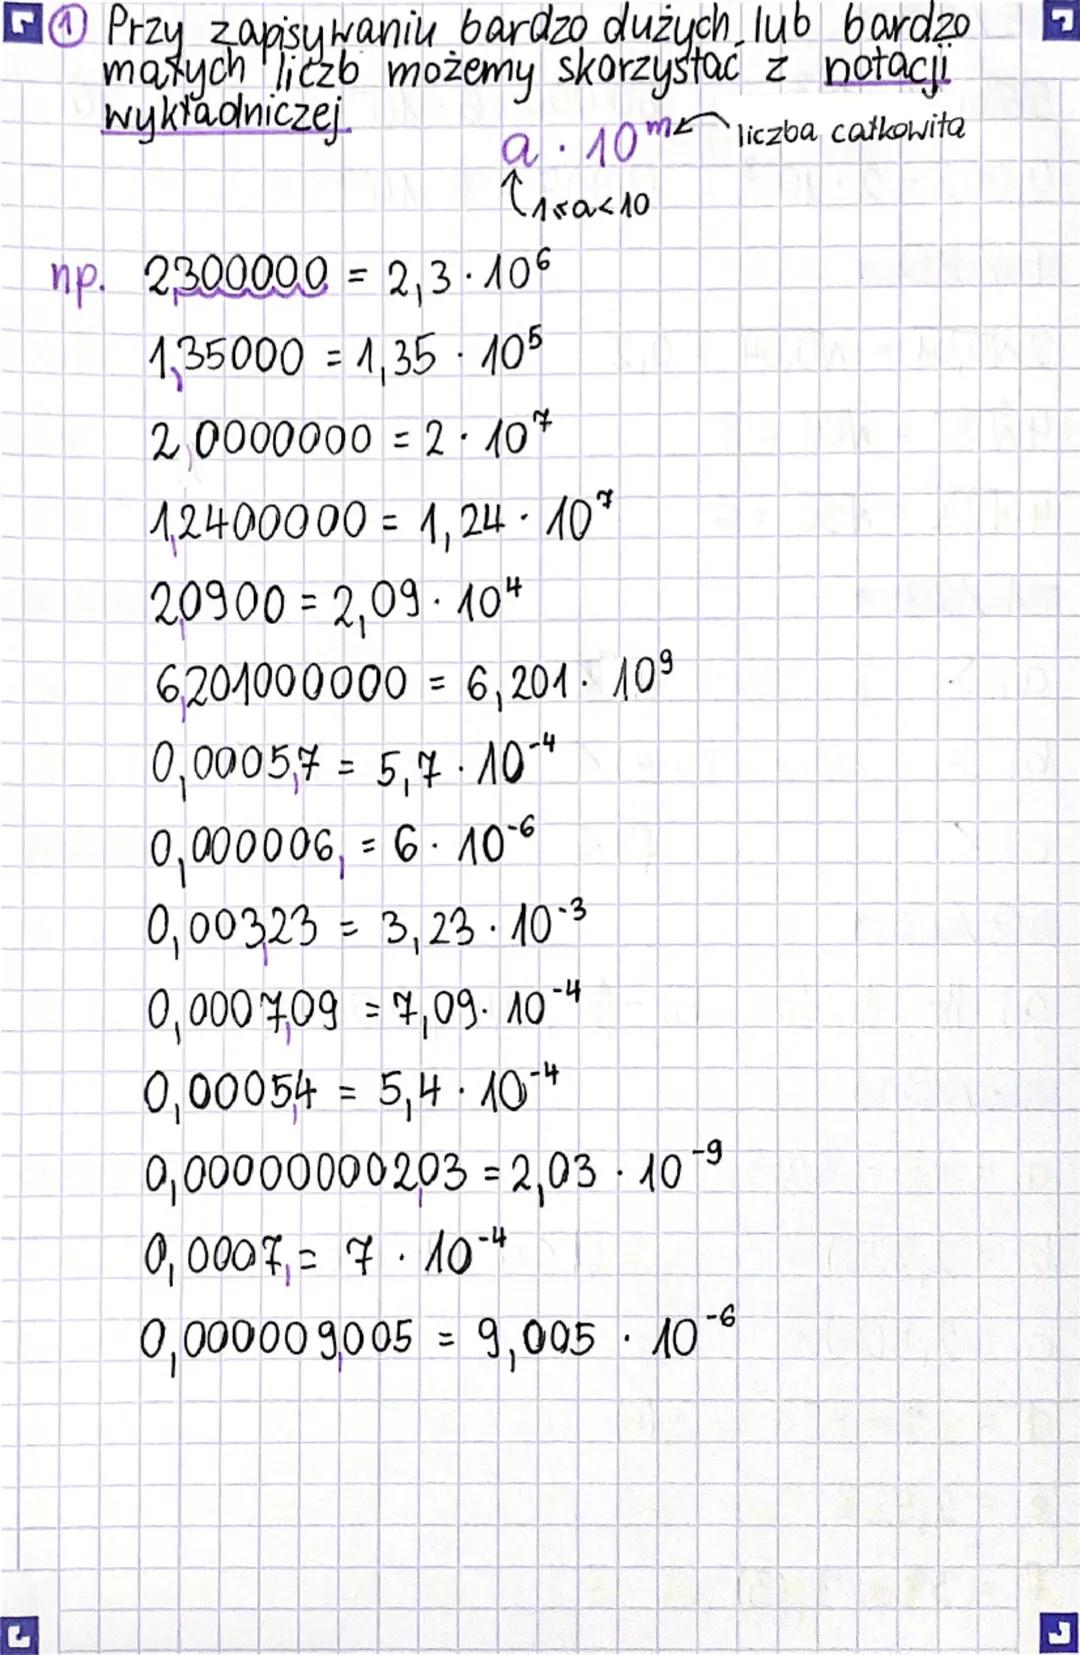 ① Przy zapisywaniu bardzo dużych lub bardzo
małych liczb możemy skorzystać z notacji
wykładniczej.
a · 10^m liczba całkowita
1≤a<10
np. 2,300000 = 2,3 · 10⁶
1,35000 = 1,35 · 10⁵
2,0000000 = 2 · 10⁷
1,2400000 = 1,24 · 10⁷
2,0900 = 2,09 · 10⁴
6,201000000 = 6,201 · 10⁹
0,0005,7 = 5,7 · 10⁻⁴
0,000006, = 6 · 10⁻⁶
0,003,23 = 3,23 · 10⁻³
0,0007,09 = 7,09 · 10⁻⁴
0,0005,4 = 5,4 · 10⁻⁴
0,000000002,03 = 2,03 · 10⁻⁹
0,0007, = 7 · 10⁻⁴
0,000009,005 = 9,005 · 10⁻⁶